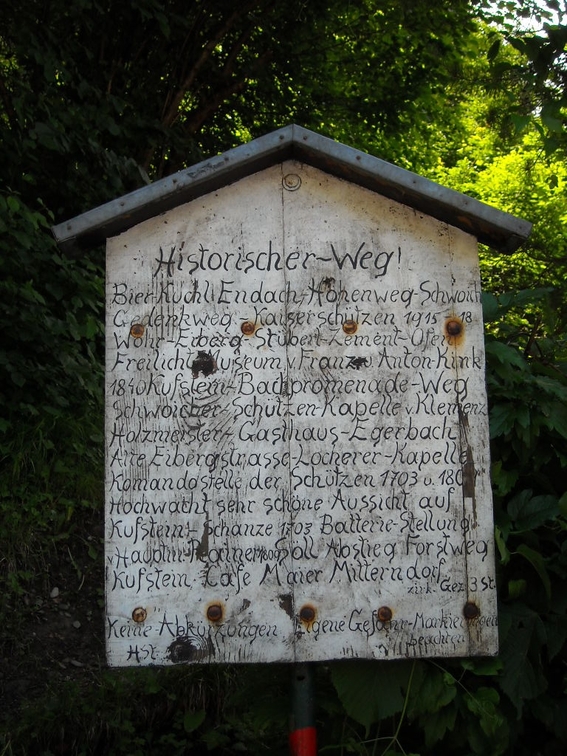 Historischer-Weg!
Bier-Kuchl Endach-Höhenweg-Schwoit
Gedenkweg-Kaiserschützen 1915-18
Wöhr-Eiberg-Stüberl-Zement-Ofen
Freilicht Museum v. Franz- Anton Kink
1840 Kufstein-Bachpromenade-Weg
Schwoicher-Schützen-Kapelle v. Klemenz
Holzmeister Gasthaus-Egerbach
Alte Eibergstrasse-Locherer-Kapelle
Komandostelle der Schützen 1703 u. 180
Hochwacht sehr schöne Aussicht auf
Kufstein Schanze 1703 Batterie-Stellung
v. Hauptm. 1809 Söll Abstieg Forstweg
Kufstein Cafe Maier Mitterndorf
zirk. Gez. 3 St.
Keine Abkürzungen Eigene Gefahr-Markierungen
beachten
H St.